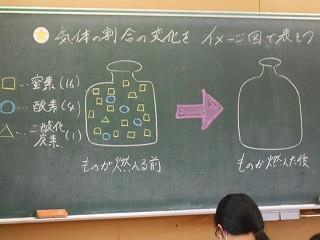 気体の割合の変化を イメージ図で表そう
□…窒素(16)
○…酸素(4)
△…二酸化炭素(1)
ものが燃える前
ものが燃えた後